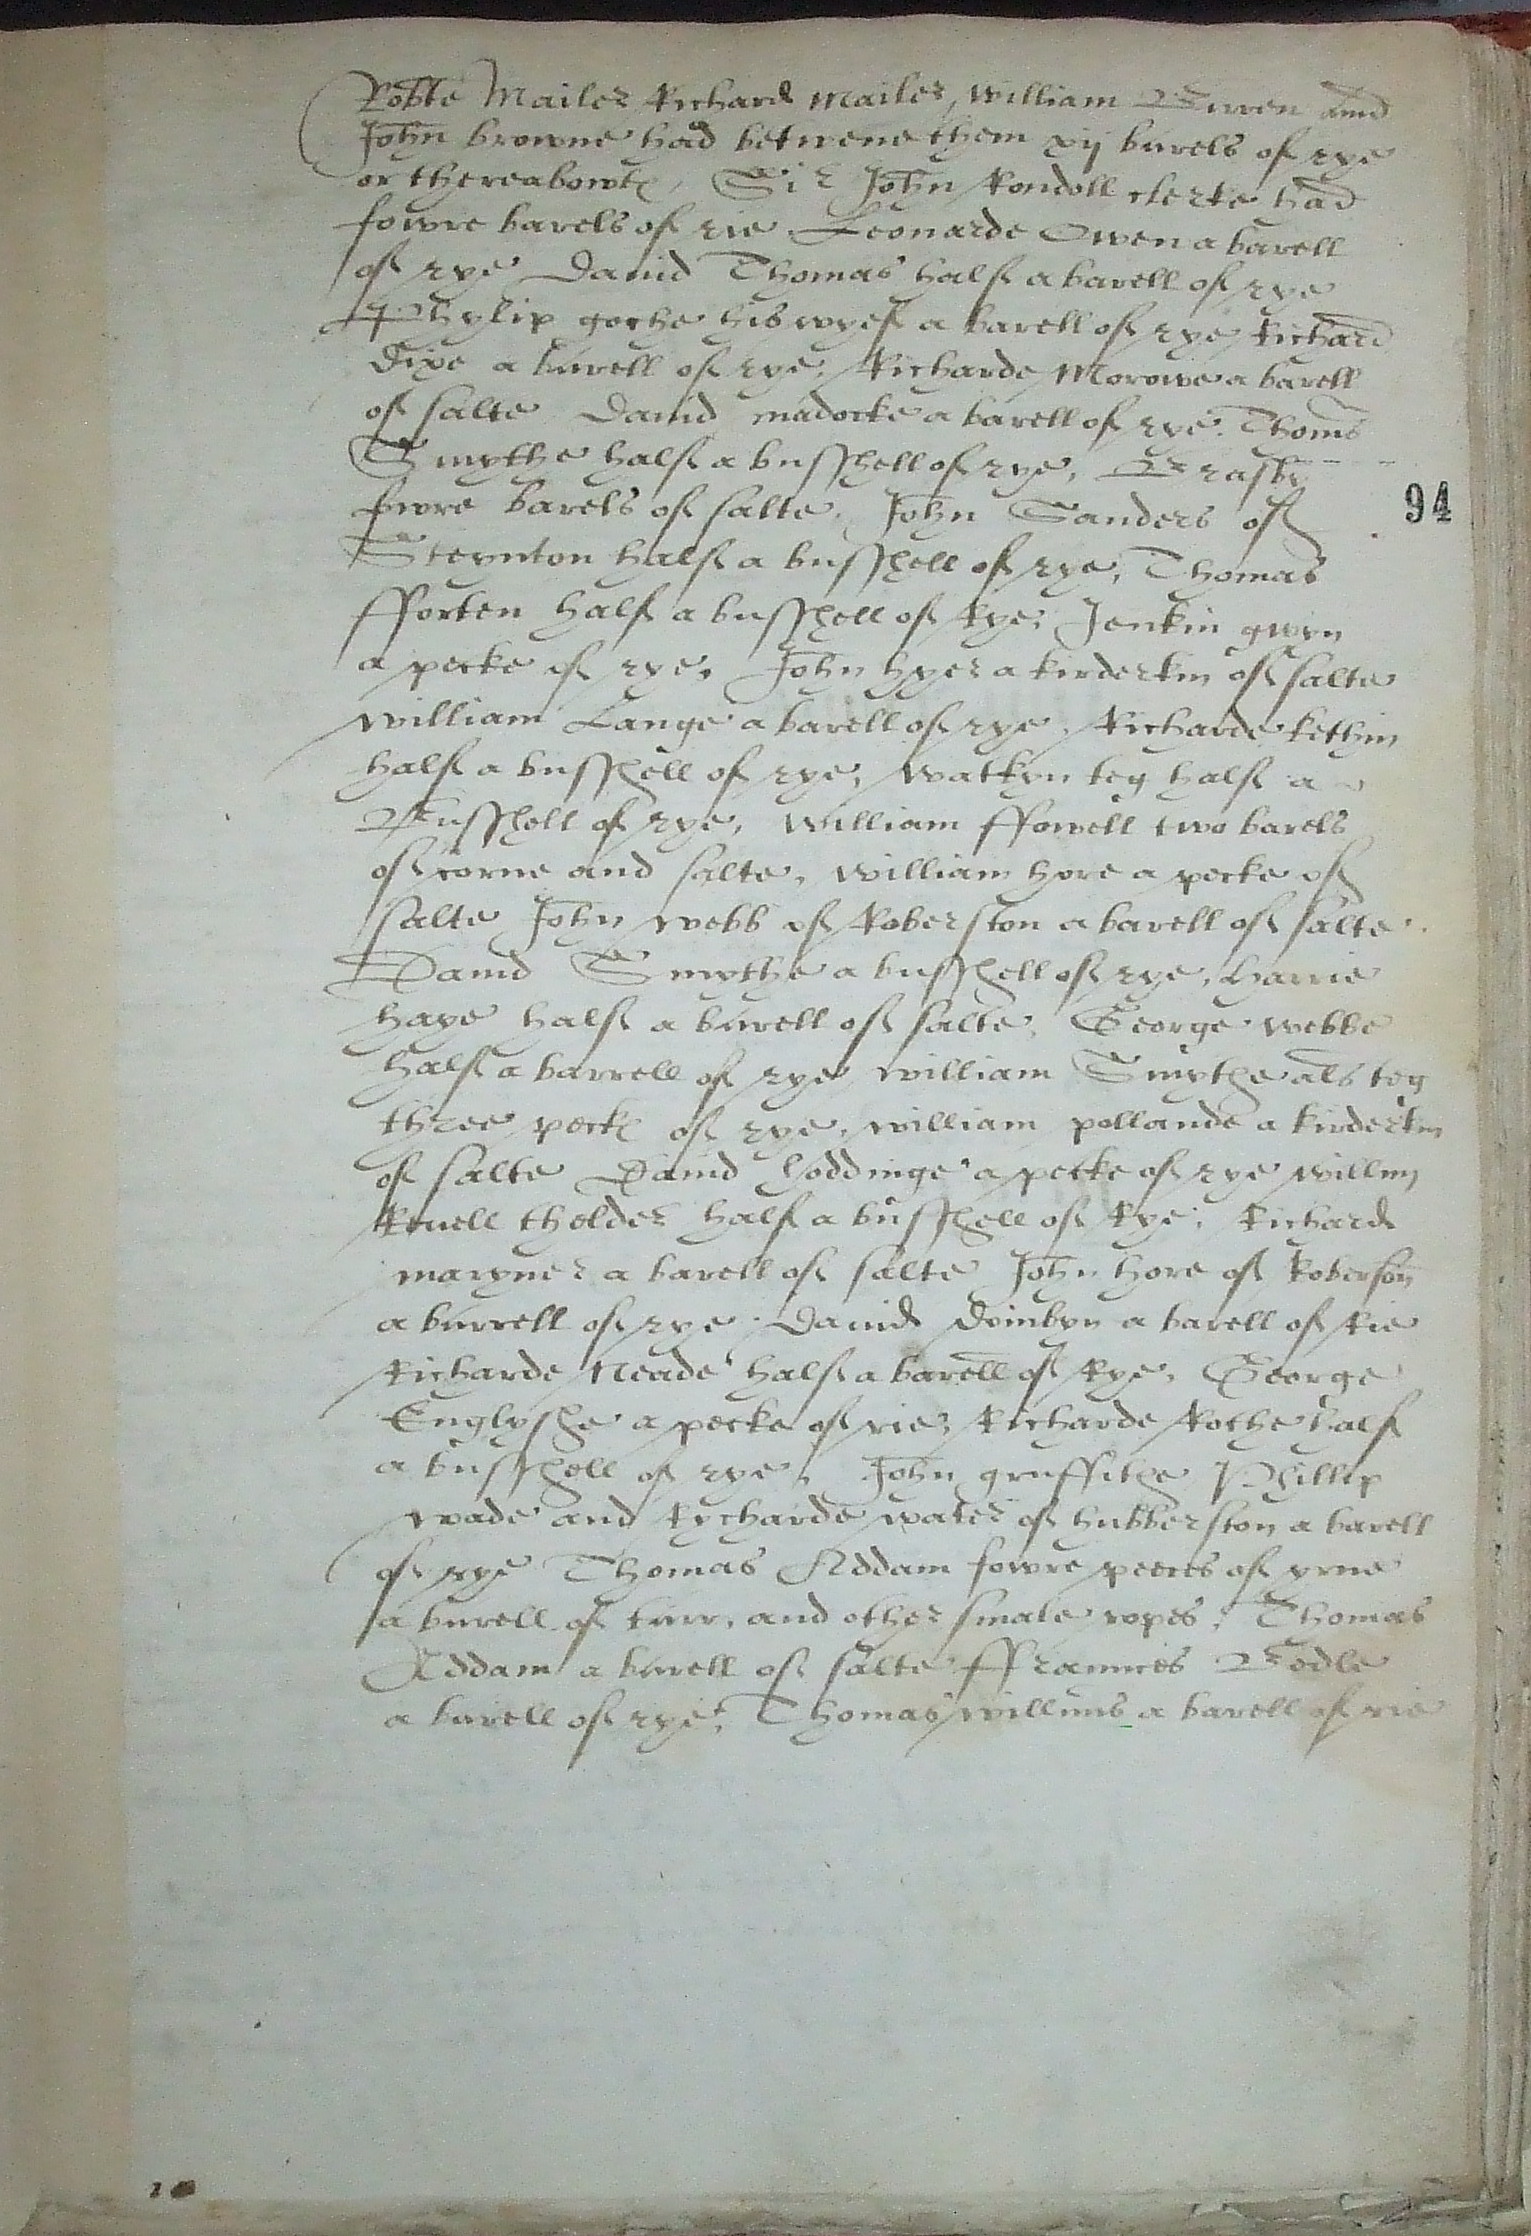 Robte Mailer Richard Mailer, William Bwen and
John browne had betwene them xij barels of rye
or thereabowt, Sir John Rondoll clerke had
fowre barels of rie. Leonarde Owen a barell
of rye David Thomas half a barell of rye
Phylip goche his wyef a barell of rye Richard
Dixe a barell of rye, Richarde Morowe a barell
of salte David madocke a barell of rye. Thomas
Smythe half a busshell of rye,
fowre barels of salte, John Sanders of
94
Steynton half a busshell of rye, Thomas
fforten half a busshell of Rye, Jenkin gwyn
a pecke of rye, John hyer a kirderkin of salte
William Lange a barell of rye, Richarde kethin
half a busshell of rye, Watkyn teg half a
Busshell of rye, William ffowell two barels
of corne and salte, William hore a pecke of
salte John Webb of Roberston a barell of salte
David Smythe a busshell of rye, Harrie
haye half a barell of salte, George Webbe
half a barrell of rye William Smythe als teg
three peck of rye, William pollande a kirderkin
of salte David hoddinge a pecke of rye Willim
Rouell thelder half a busshell of Rye, Richard
maryner a barell of salte John hore of Roberson
a barrell of rye. David Doinbyn a barell of Rie
Richarde Neade half a barell of Rye, George
Englyshe a pecke of rie, Richarde Roche half
a busshell of rye, John gruffithe Phillip
Wade and Rycharde Water of hubberston a barell
of rye Thomas Addam fowre peeces of yrne
a barell of tarr, and other smale ropes, Thomas
Addam a barell of salte ffrannces Bodle
a barell of rye, Thomas Willims a barell of rie